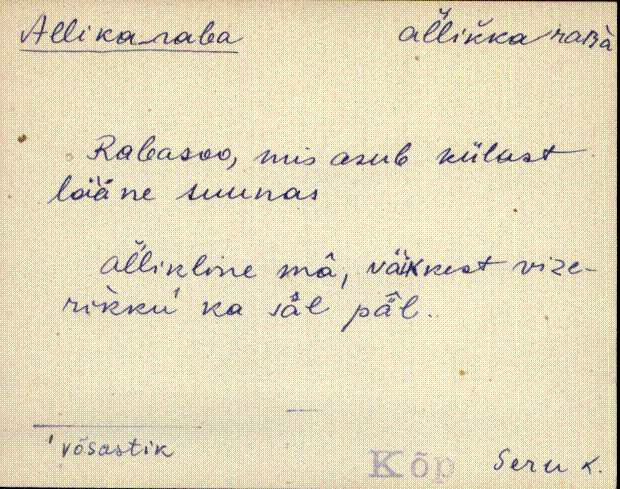 Allikaraba àl̆likka raʙà
Rabasoo, mis asub külast
lääne suunas
al̆likline mâ, väikkest vize-
rikku¹ ka sääl pääl.
¹ võsastik
Kõp Seru k.